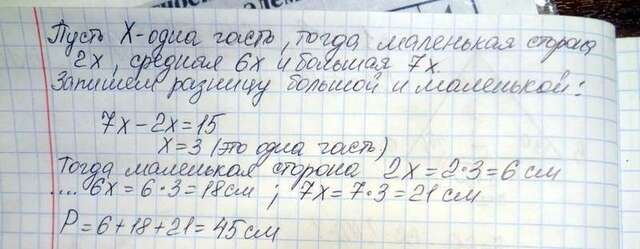 Пусть X-одна часть, тогда маленькая сторона
2x, средняя 6x и большая 7x.
Запишем разницу большой и маленькой:
7x-2x=15
x=3 (это одна часть)
Тогда маленькая сторона 2x=2·3=6 см
.... 6x=6·3=18см ; 7x=7·3=21 см
P=6+18+21=45см